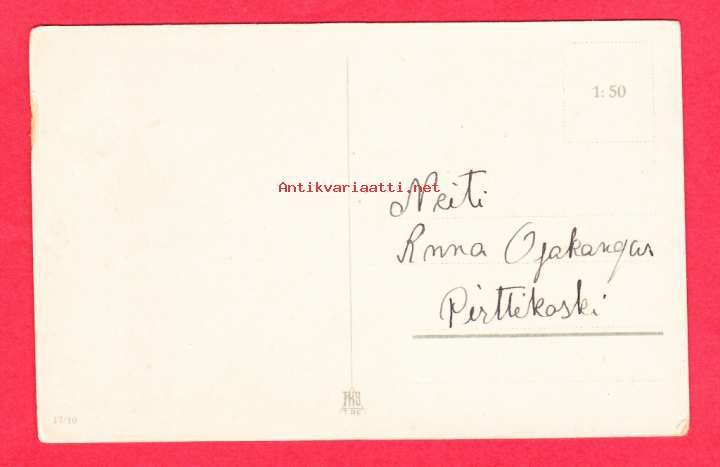 1:50
Antikvariaatti.net
Neiti
Anna Ojakangas
Pirttikoski
17/10